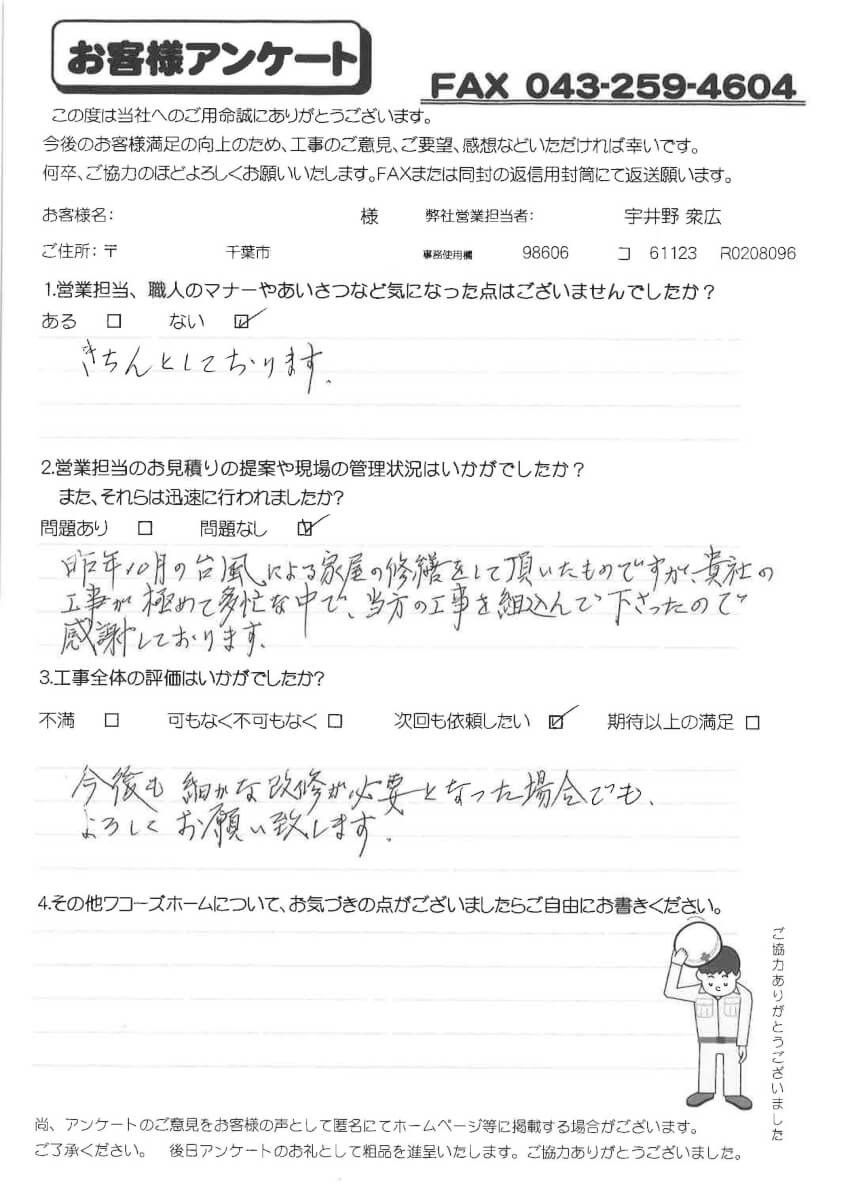 お客様アンケート
FAX 043-259-4604
この度は当社へのご用命誠にありがとうございます。
今後のお客様満足の向上のため、工事のご意見、ご要望、感想などいただければ幸いです。
何卒、ご協力のほどよろしくお願いいたします。FAXまたは同封の返信用封筒にて返送願います。
お客様名: 様 弊社営業担当者: 宇井野 衆広
ご住所:〒 千葉市 事務使用欄 98606 コ 61123 R0208096
1.営業担当、職人のマナーやあいさつなど気になった点はございませんでしたか?
ある □ ない ☑
きちんとしております.
2.営業担当のお見積りの提案や現場の管理状況はいかがでしたか?
また、それらは迅速に行われましたか?
問題あり □ 問題なし ☑
昨年10月の台風による家屋の修繕をして頂いたものですが、貴社の
工事が極めて多忙な中で、当方の工事を組込んで下さったので
感謝しております.
3.工事全体の評価はいかがでしたか?
不満 □ 可もなく不可もなく □ 次回も依頼したい ☑ 期待以上の満足 □
今後も細かな改修が必要となった場合でも、
よろしくお願い致します.
4.その他ワコーズホームについて、お気づきの点がございましたらご自由にお書きください。
ご協力ありがとうございました
尚、アンケートのご意見をお客様の声として匿名にてホームページ等に掲載する場合がございます。
ご了承ください。 後日アンケートのお礼として粗品を進呈いたします。ご協力ありがとうございました。